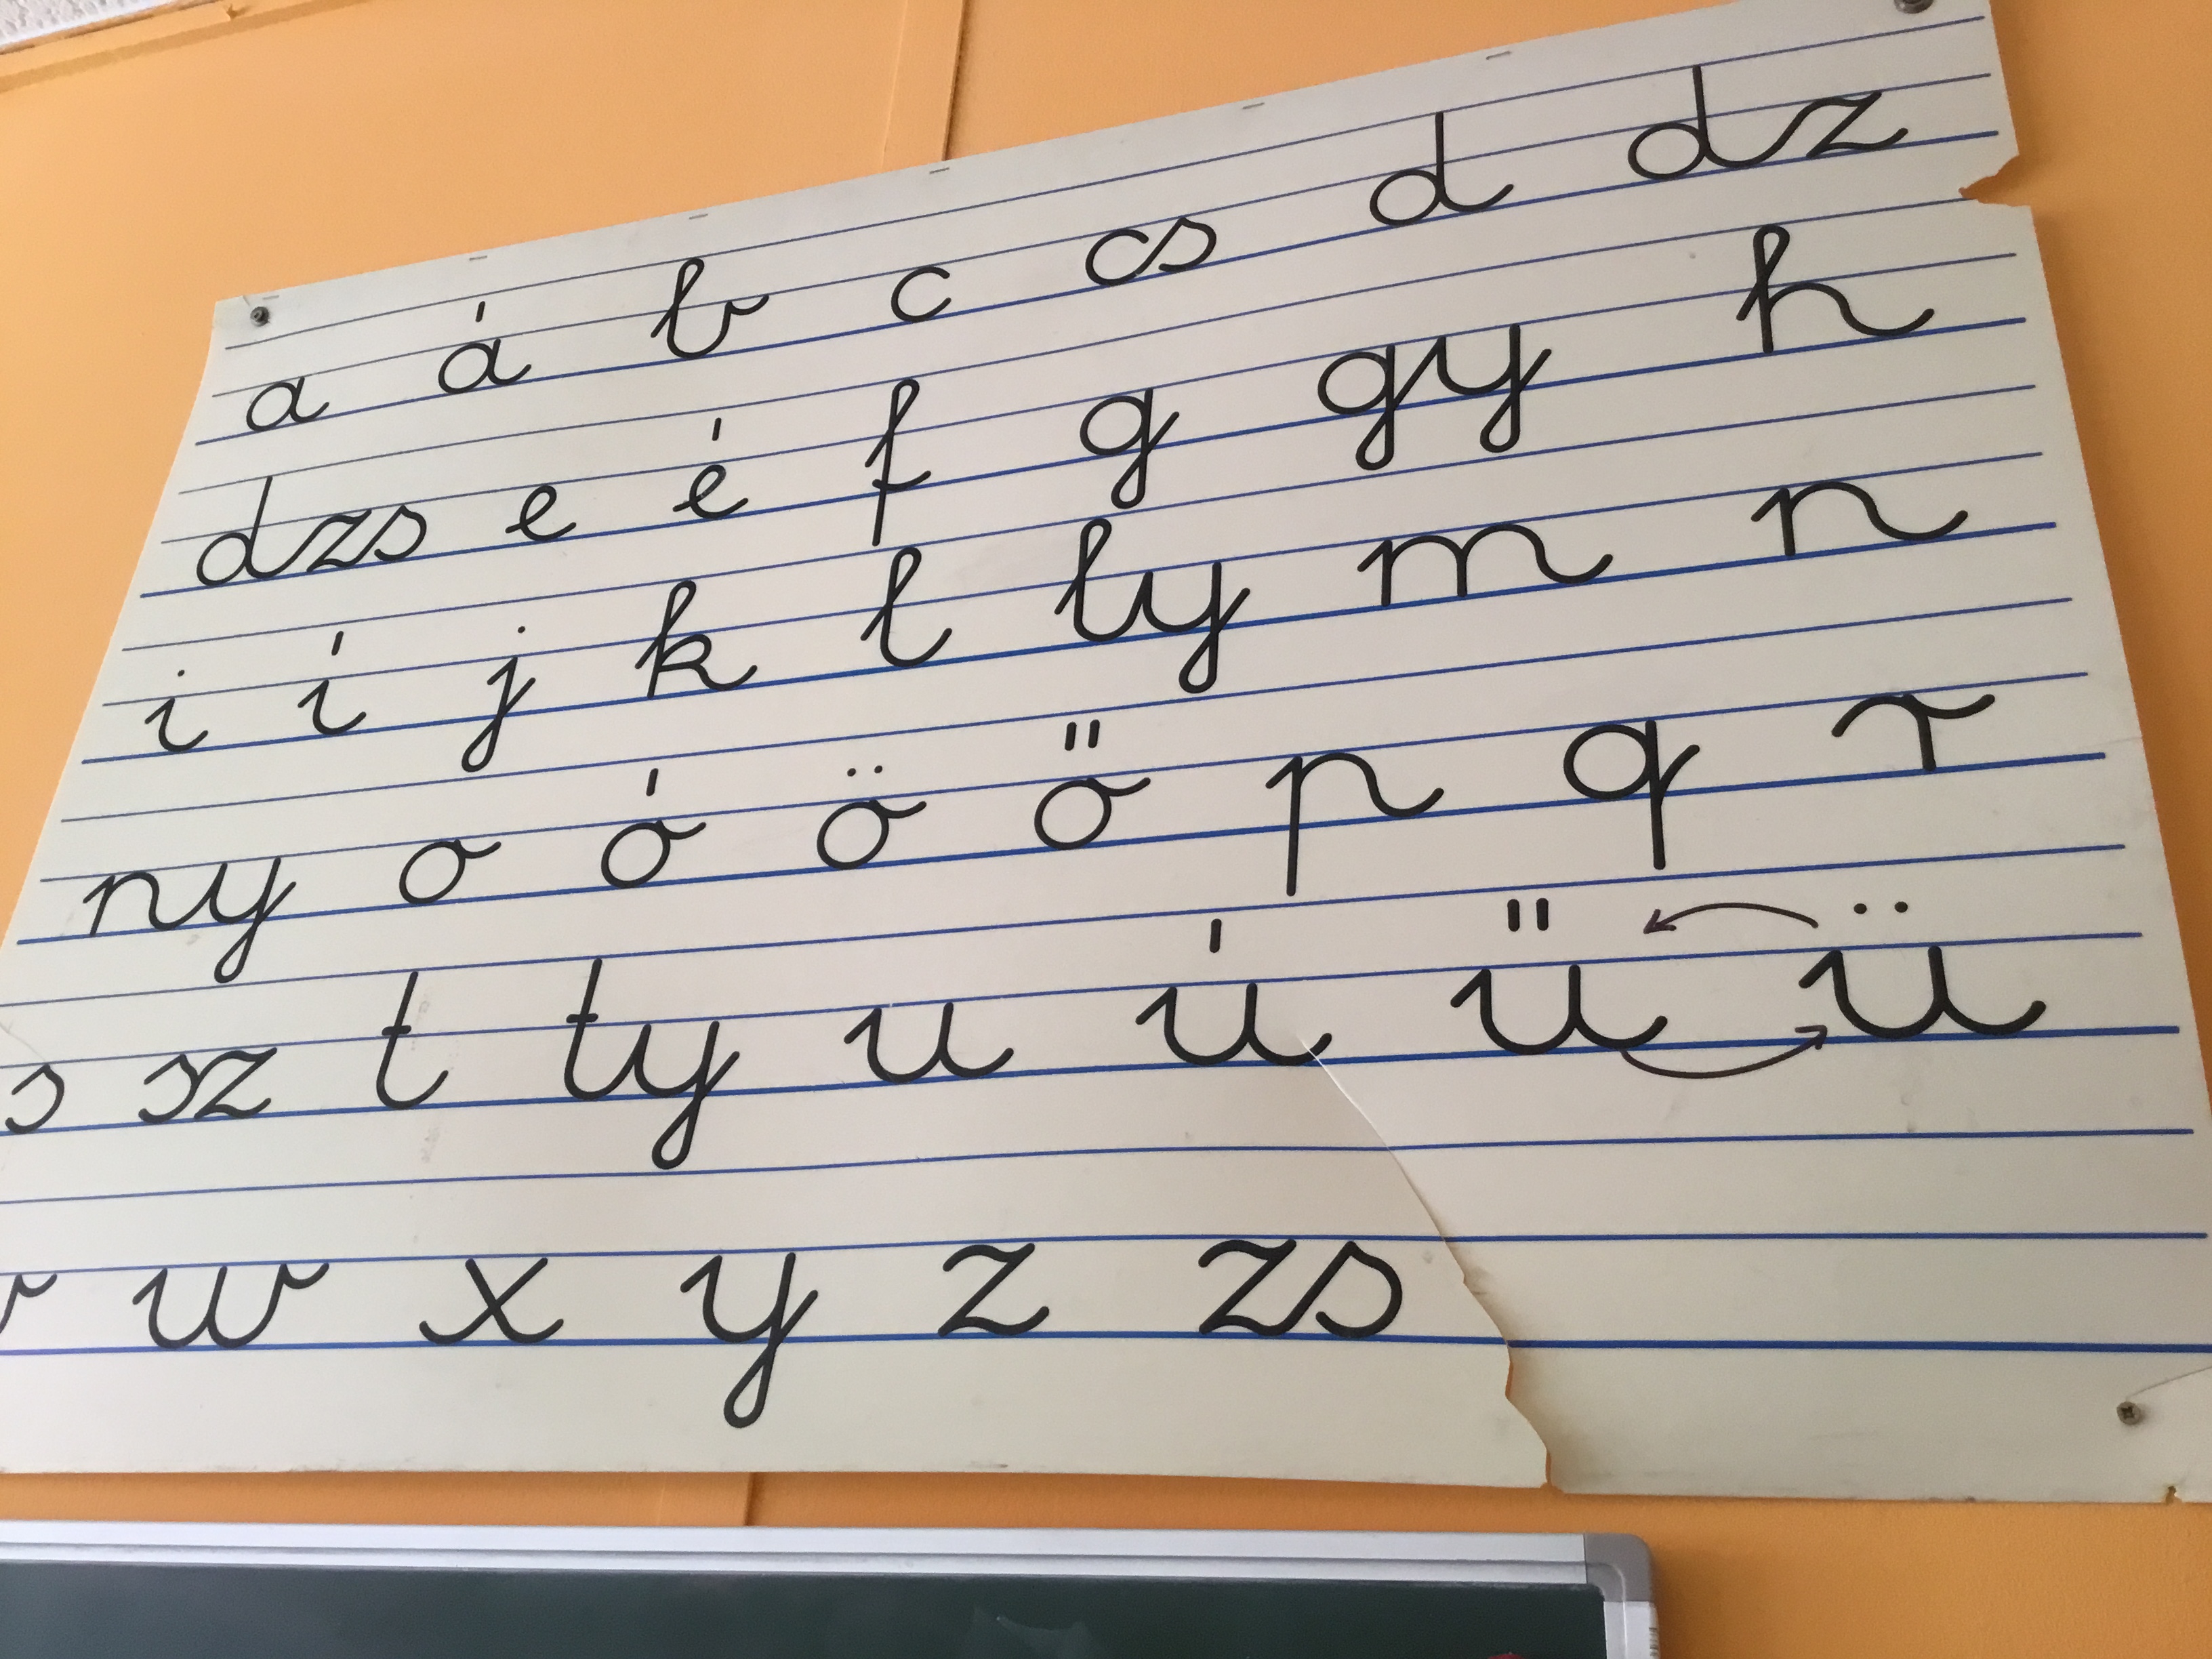 a á b c cs d dz
dzs e é f g gy h
i í j k l ly m n
ny o ó ö ő p q r
s sz t ty u ú ű ü
v w x y z zs